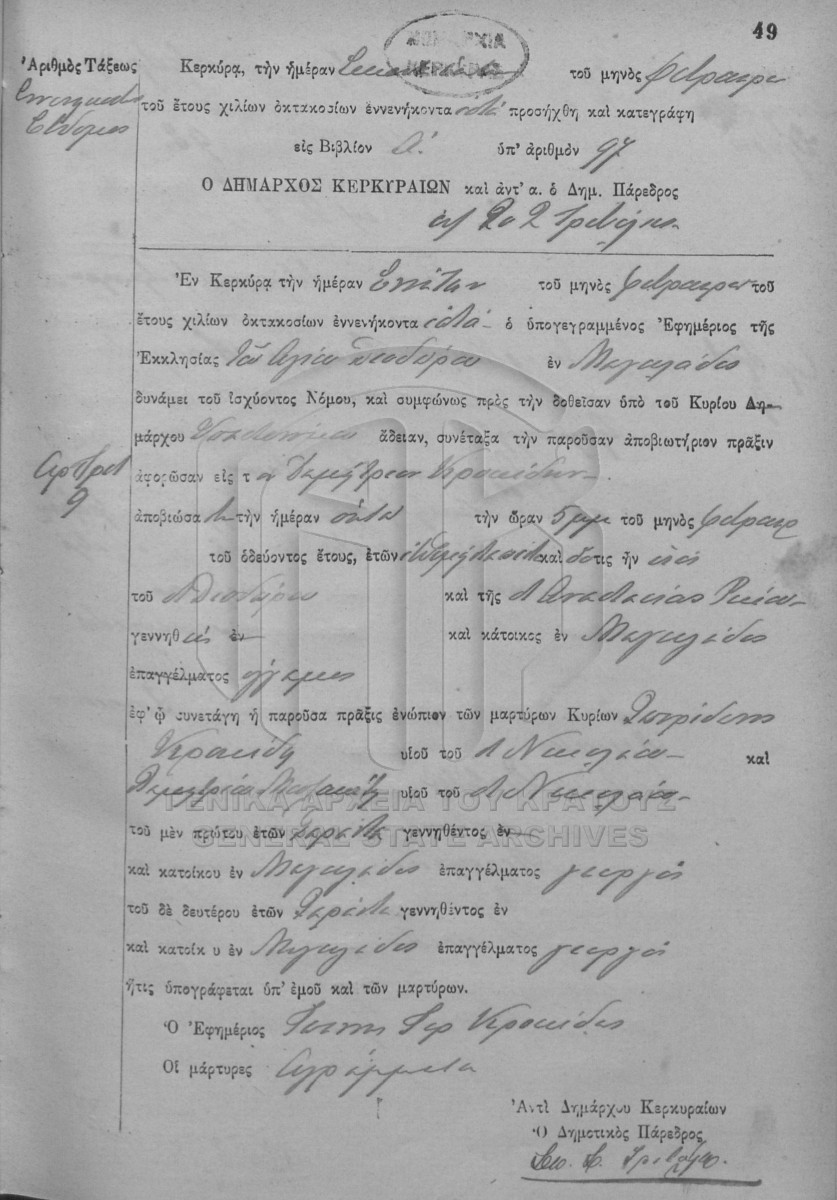 49
ΔΗΜΑΡΧΙΑ
ΚΕΡΚΥΡΑΣ
Ἀριθμὸς Τάξεως
Κερκύρᾳ, τὴν ἡμέραν τοῦ μηνὸς Φεβρουαρίου
Ἐννενηκοστὸς
Ἕβδομος
τοῦ ἔτους χιλίων ὀκτακοσίων ἐννενήκοντα ὀκτὼ προσήχθη καὶ κατεγράφη
εἰς Βιβλίον Α. ὑπ' ἀριθμὸν 97
Ο ΔΗΜΑΡΧΟΣ ΚΕΡΚΥΡΑΙΩΝ καὶ ἀντ' α. ὁ Δημ. Πάρεδρος
Ἐν Κερκύρᾳ τὴν ἡμέραν ἐνάτην τοῦ μηνὸς Φεβρουαρίου τοῦ
ἔτους χιλίων ὀκτακοσίων ἐννενήκοντα ὀκτὼ ὁ ὑπογεγραμμένος Ἐφημέριος τῆς
Ἐκκλησίας τοῦ Ἁγίου Θεοδώρου ἐν Μαγουλάδες
δυνάμει τοῦ ἰσχύοντος Νόμου, καὶ συμφώνως πρὸς τὴν δοθεῖσαν ὑπὸ τοῦ Κυρίου Δη-
μάρχου ἄδειαν, συνέταξα τὴν παροῦσαν ἀποβιωτήριον πρᾶξιν
9
ἀφορῶσαν εἰς τὸν Δημήτριον Κροκίδην
ἀποβιώσα τὴν ἡμέραν τὴν ὥραν 5 μμ τοῦ μηνὸς Φεβρουαρ
τοῦ ὁδεύοντος ἔτους, ἐτῶν καὶ ὅστις ἦν υἱὸς
τοῦ Θεοδώρου καὶ τῆς Ἀναστασίας
γεννηθεὶς ἐν καὶ κάτοικος ἐν Μαγουλάδες
ἐπαγγέλματος ἄγαμος
ἐφ' ᾧ συνετάγη ἡ παροῦσα πρᾶξις ἐνώπιον τῶν μαρτύρων Κυρίων Σπυρίδωνος
Κροκίδη υἱοῦ τοῦ Νικολάου καὶ
Δημητρίου υἱοῦ τοῦ Νικολάου
ΓΕΝΙΚΑ ΑΡΧΕΙΑ ΤΟΥ ΚΡΑΤΟΥΣ
GENERAL STATE ARCHIVES
τοῦ μὲν πρώτου ἐτῶν σαράντα γεννηθέντος ἐν
καὶ κατοίκου ἐν Μαγουλάδες ἐπαγγέλματος γεωργὸς
τοῦ δὲ δευτέρου ἐτῶν σαράντα γεννηθέντος ἐν
καὶ κατοίκ υ ἐν Μαγουλάδες ἐπαγγέλματος γεωργὸς
ἥτις ὑπογράφεται ὑπ' ἐμοῦ καὶ τῶν μαρτύρων.
Ὁ Ἐφημέριος Κροκίδας
Οἱ μάρτυρες ἀγράμματοι
Ἀντὶ Δημάρχου Κερκυραίων
Ὁ Δημοτικὸς Πάρεδρος